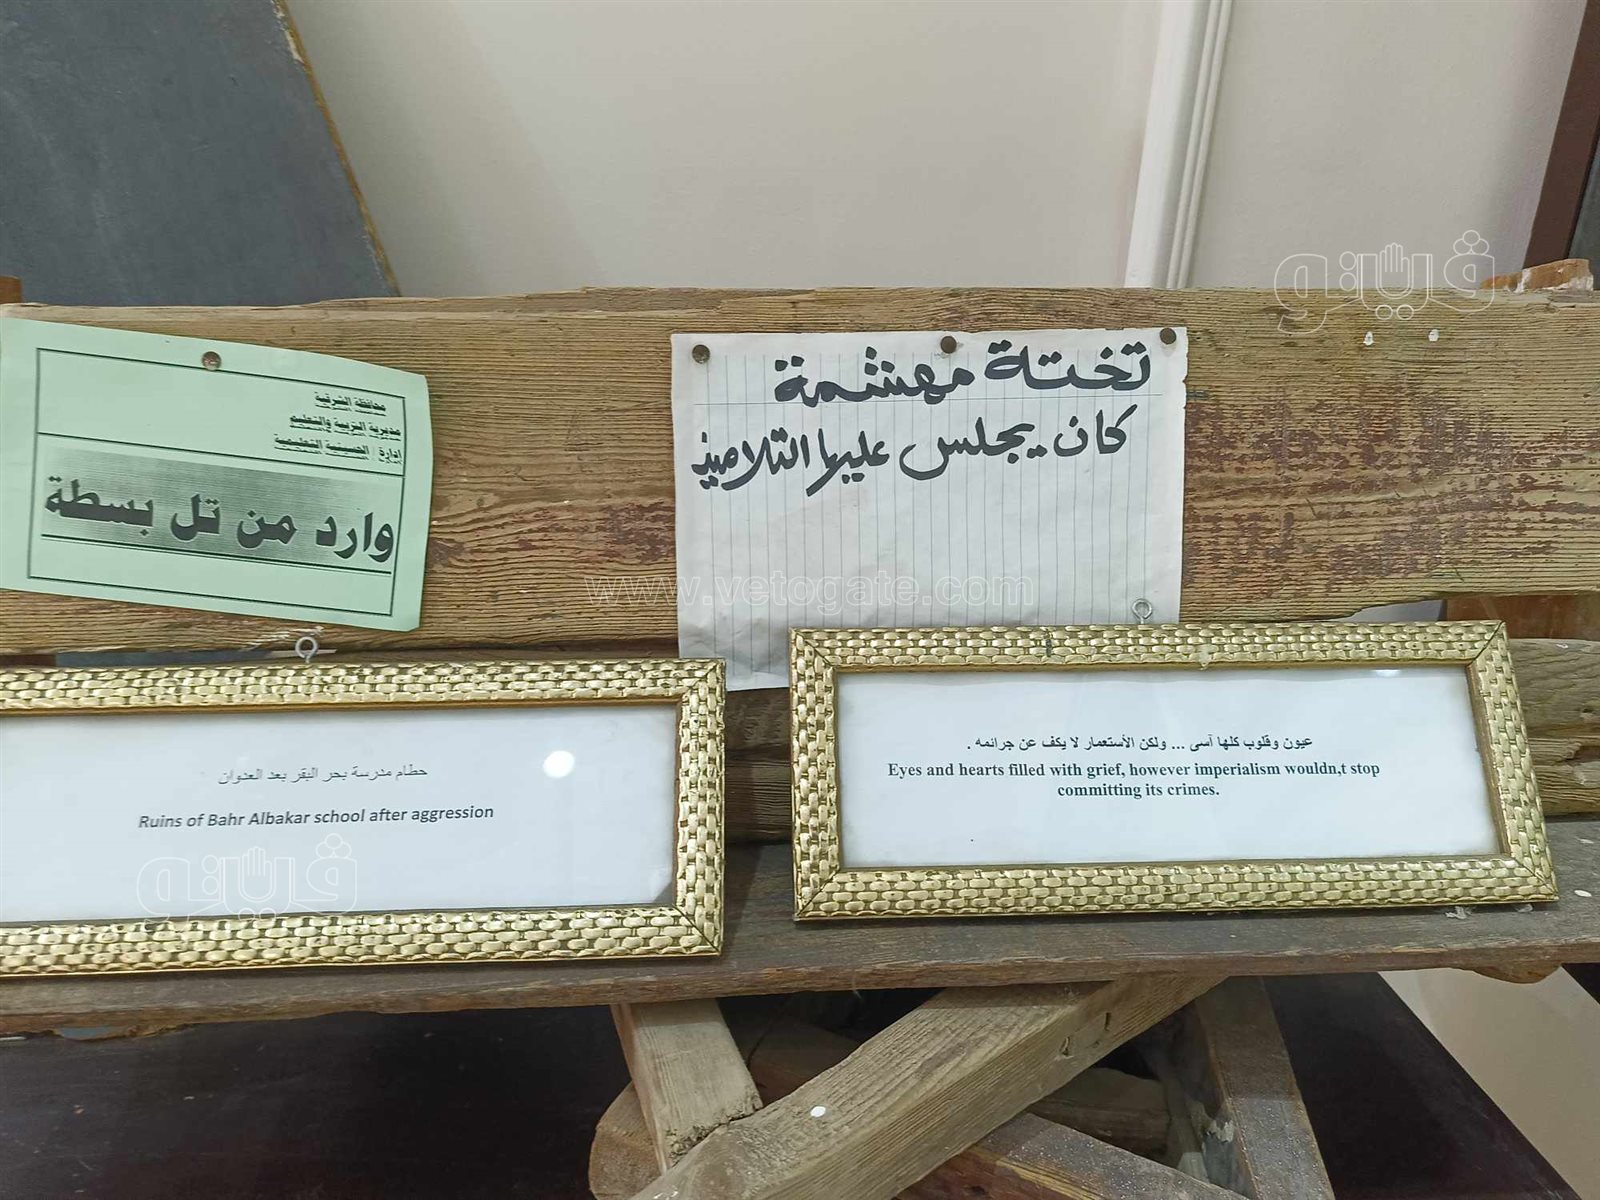 محافظة الشرقية
مديرية التربية والتعليم
إدارة / الحسينية التعليمية
وارد من تل بسطة
تختة مهشمة
كان يجلس عليها التلاميذ
www.vetogate.com
فيتو
حطام مدرسة بحر البقر بعد العدوان
Ruins of Bahr Albakar school after aggression
فيتو
عيون وقلوب كلها آسى ... ولكن الأستعمار لا يكف عن جرائمه .
Eyes and hearts filled with grief, however imperialism wouldn,t stop
committing its crimes.